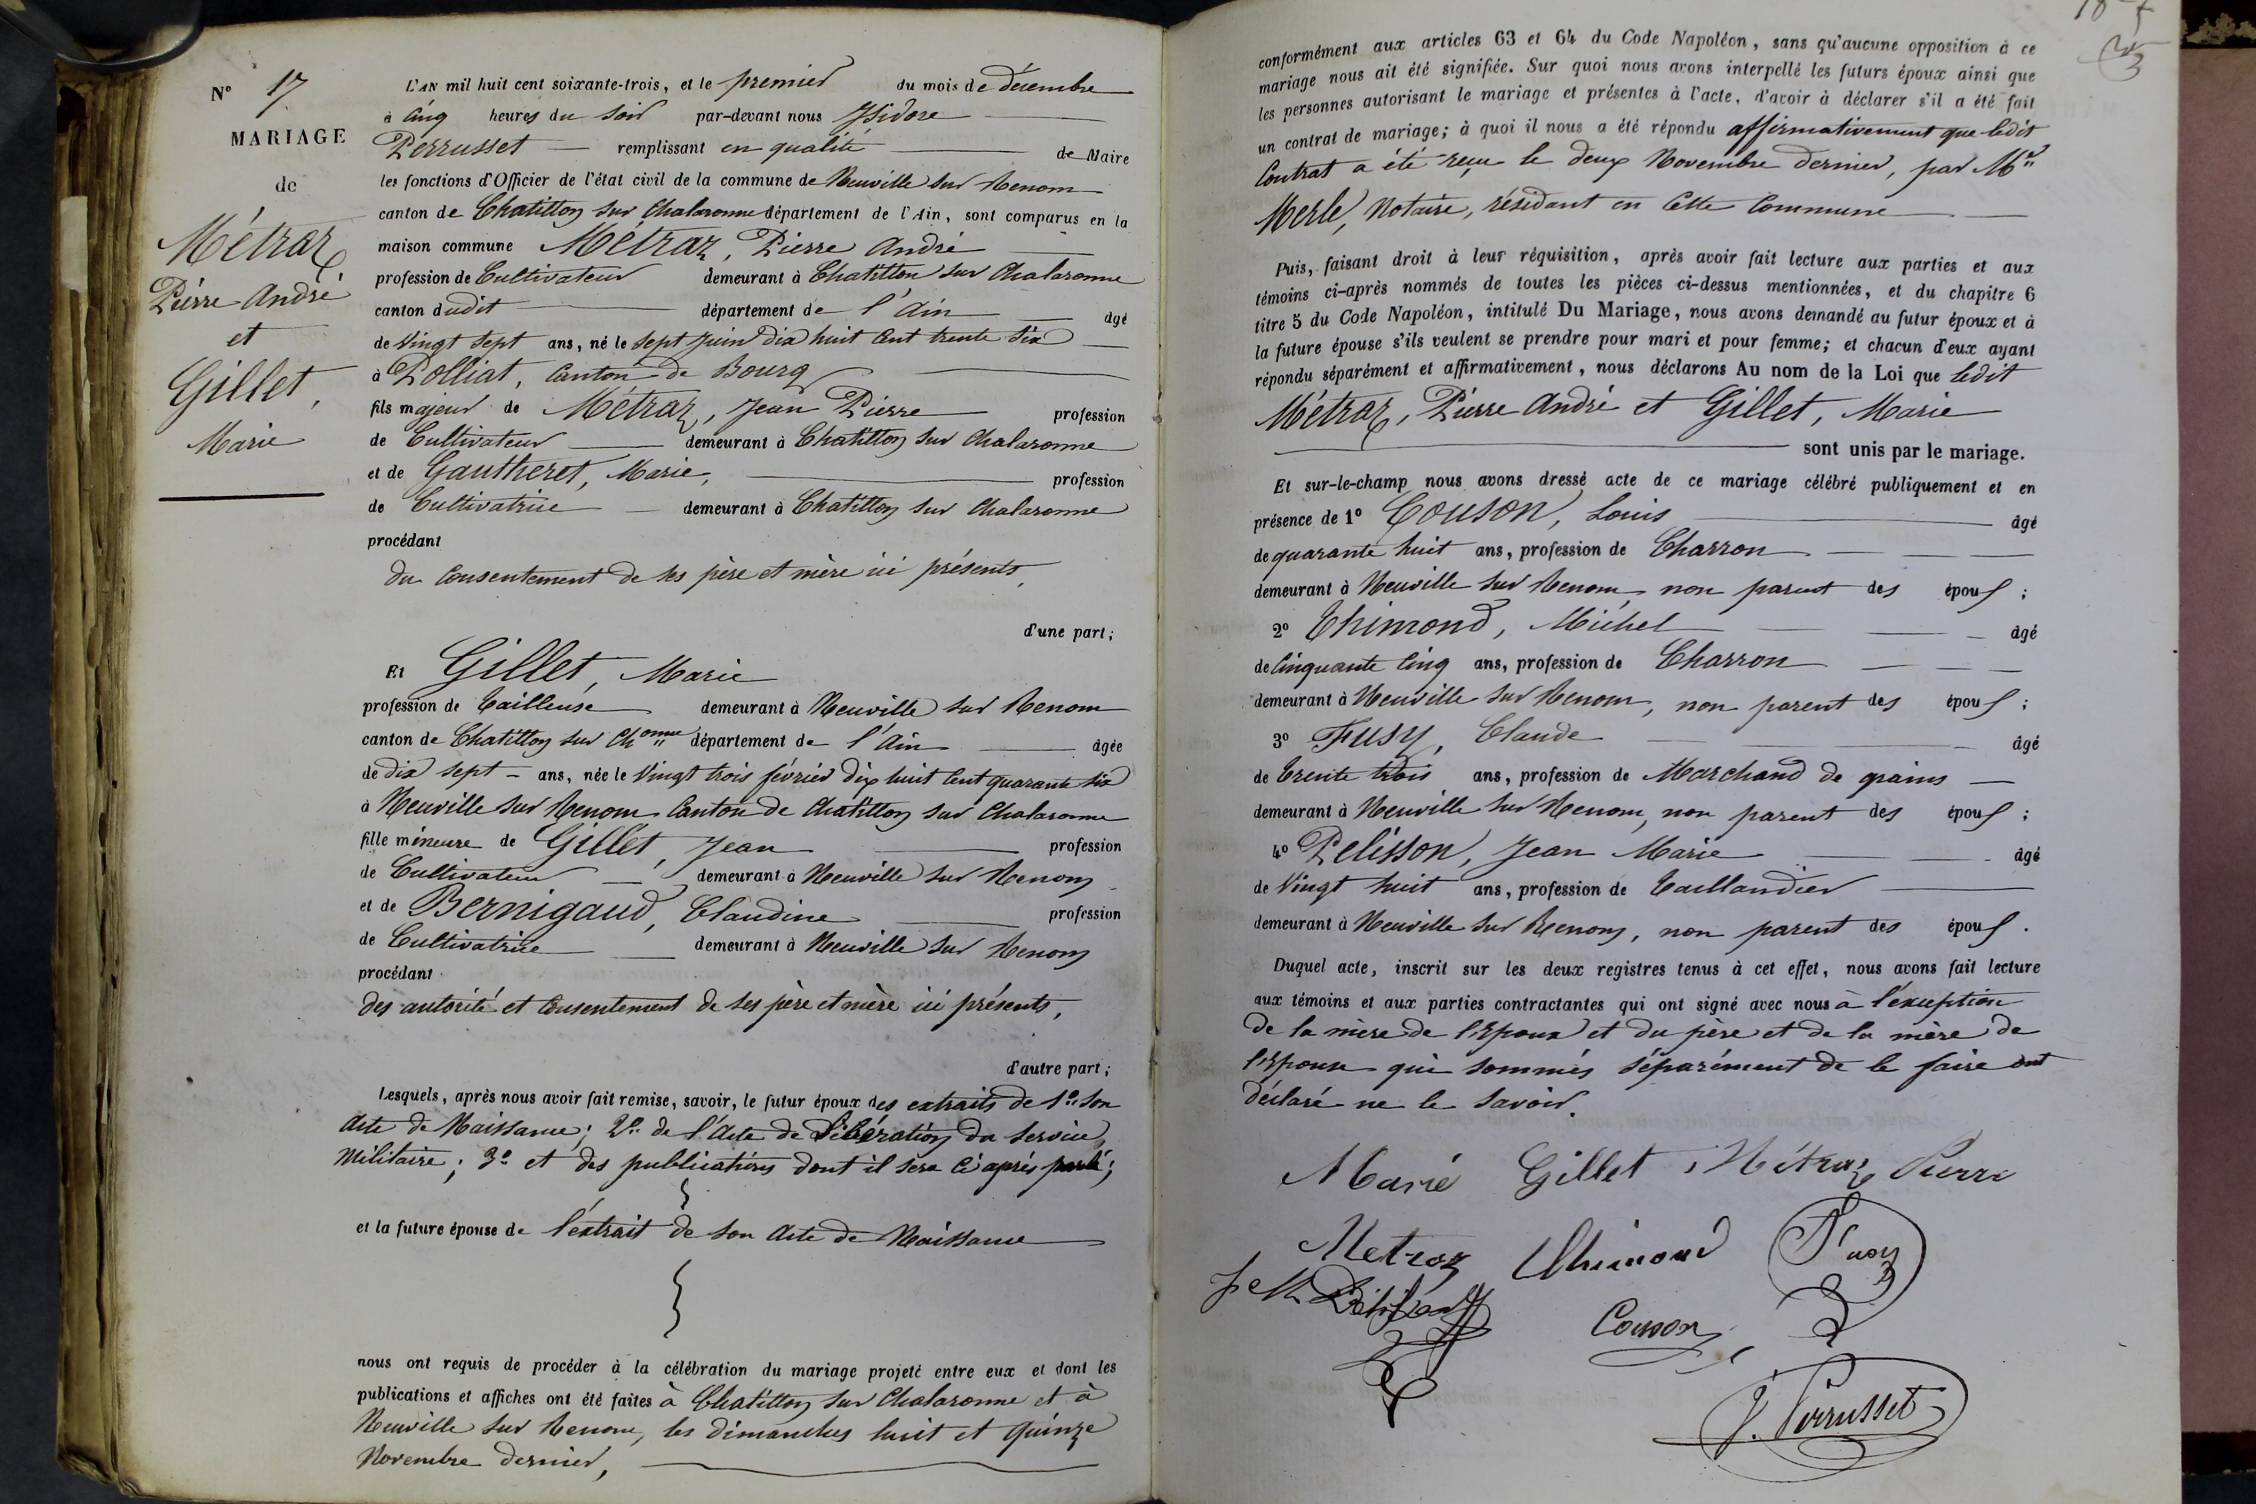 N° 17
MARIAGE
de
Métraz
Pierre André
et
Gillet,
Marie
L'AN mil huit cent soixante-trois, et le premier du mois de décembre
à cinq heures du soir par-devant nous Isidore
Perrusset remplissant en qualité de Maire
les fonctions d'Officier de l'état civil de la commune de Neuville sur Renom
canton de Chatillon sur Chalaronne département de l'Ain, sont comparus en la
maison commune Métraz, Pierre André
profession de Cultivateur demeurant à Chatillon sur Chalaronne
canton dudit département de l'Ain âgé
de Vingt sept ans, né le sept Juin dix huit cent trente six
à Polliat, Canton de Bourg
fils majeur de Métraz, Jean Pierre profession
de Cultivateur demeurant à Chatillon sur Chalaronne
et de Gautheret, Marie, profession
de Cultivatrice demeurant à Chatillon sur Chalaronne
procédant
du consentement de ses père et mère ici présents,
d'une part;
Et Gillet, Marie
profession de Tailleuse demeurant à Neuville sur Renom
canton de Chatillon sur Chonne département de l'Ain âgée
de dix sept ans, née le Vingt trois février dix huit cent quarante six
à Neuville sur Renom Canton de Chatillon sur Chalaronne
fille mineure de Gillet, Jean profession
de Cultivateur demeurant à Neuville sur Renom
et de Bernigaud, Claudine profession
de Cultivatrice demeurant à Neuville sur Renom
procédant
des autorité et consentement de ses père et mère ici présents,
d'autre part;
Lesquels, après nous avoir fait remise, savoir, le futur époux des extraits de 1° son
Acte de Naissance; 2° de l'Acte de Libération du service
Militaire; 3° et des publications dont il sera ci après parlé;
et la future épouse de l'extrait de son Acte de Naissance
nous ont requis de procéder à la célébration du mariage projeté entre eux et dont les
publications et affiches ont été faites à Chatillon sur Chalaronne et à
Neuville sur Renom, les dimanches huit et quinze
Novembre dernier,
conformément aux articles 63 et 64 du Code Napoléon, sans qu'aucune opposition à ce
mariage nous ait été signifiée. Sur quoi nous avons interpellé les futurs époux ainsi que
les personnes autorisant le mariage et présentes à l'acte, d'avoir à déclarer s'il a été fait
un contrat de mariage; à quoi il nous a été répondu affirmativement que ledit
Contrat a été reçu le deux Novembre dernier, par Me
Merle, Notaire, résidant en cette Commune
Puis, faisant droit à leur réquisition, après avoir fait lecture aux parties et aux
témoins ci-après nommés de toutes les pièces ci-dessus mentionnées, et du chapitre 6
titre 5 du Code Napoléon, intitulé Du Mariage, nous avons demandé au futur époux et à
la future épouse s'ils veulent se prendre pour mari et pour femme; et chacun d'eux ayant
répondu séparément et affirmativement, nous déclarons Au nom de la Loi que ledit
Métraz, Pierre André et Gillet, Marie
sont unis par le mariage.
Et sur-le-champ nous avons dressé acte de ce mariage célébré publiquement et en
présence de 1° Couson, Louis âgé
de quarante huit ans, profession de Charron
demeurant à Neuville sur Renom, non parent des époux;
2° Thimond, Michel âgé
de cinquante cinq ans, profession de Charron
demeurant à Neuville sur Renom, non parent des époux;
3° Fusy, Claude âgé
de trente trois ans, profession de Marchand de grains
demeurant à Neuville sur Renom, non parent des époux;
4° Pelisson, Jean Marie âgé
de Vingt huit ans, profession de Taillandier
demeurant à Neuville sur Renom, non parent des époux.
Duquel acte, inscrit sur les deux registres tenus à cet effet, nous avons fait lecture
aux témoins et aux parties contractantes qui ont signé avec nous à l'exception
de la mère de l'Epoux et du père et de la mère de
l'Epouse qui sommés séparément de le faire ont
déclaré ne le savoir.
Marie Gillet Métraz Pierre
Metraz Thimond Fusy
Couson
J. Perrusset